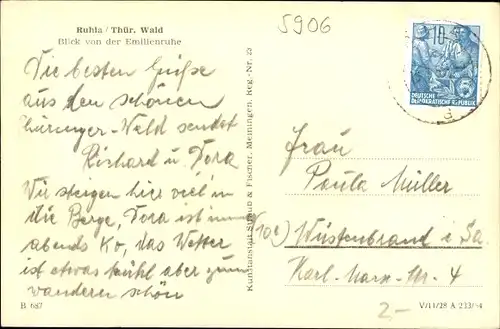 Ruhla / Thür. Wald
Blick von der Emilienruhe
5906
Die besten Grüße
aus dem schönen
Thüringer-Wald sendet
Richard u. Dora
Wir steigen hier viel in
die Berge, Dora ist immer
abends Ko, das Wetter
ist etwas kühl aber zum
wandern schön
B 687
Kunstanstalt Straub & Fischer, Meiningen, Reg.-Nr. 25
10
DEUTSCHE
DEMOKRATISCHE REPUBLIK
5
Frau
Paula Müller
(10b) Wüstenbrand i. Sa.
Karl-Marx-Str. 4
2,-
V/11/28 A 233/54